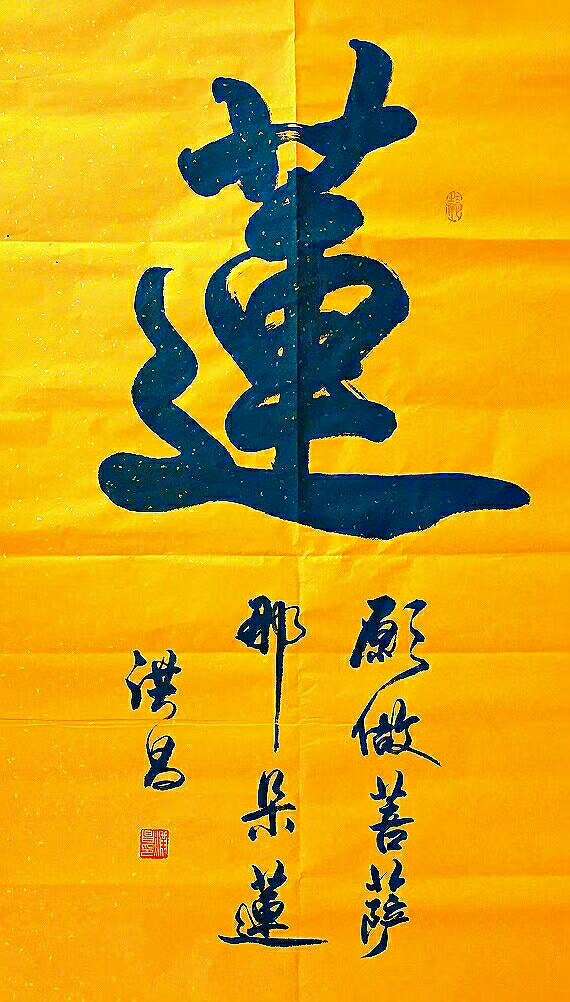 蓮
願做菩薩
那朵蓮
洪昌